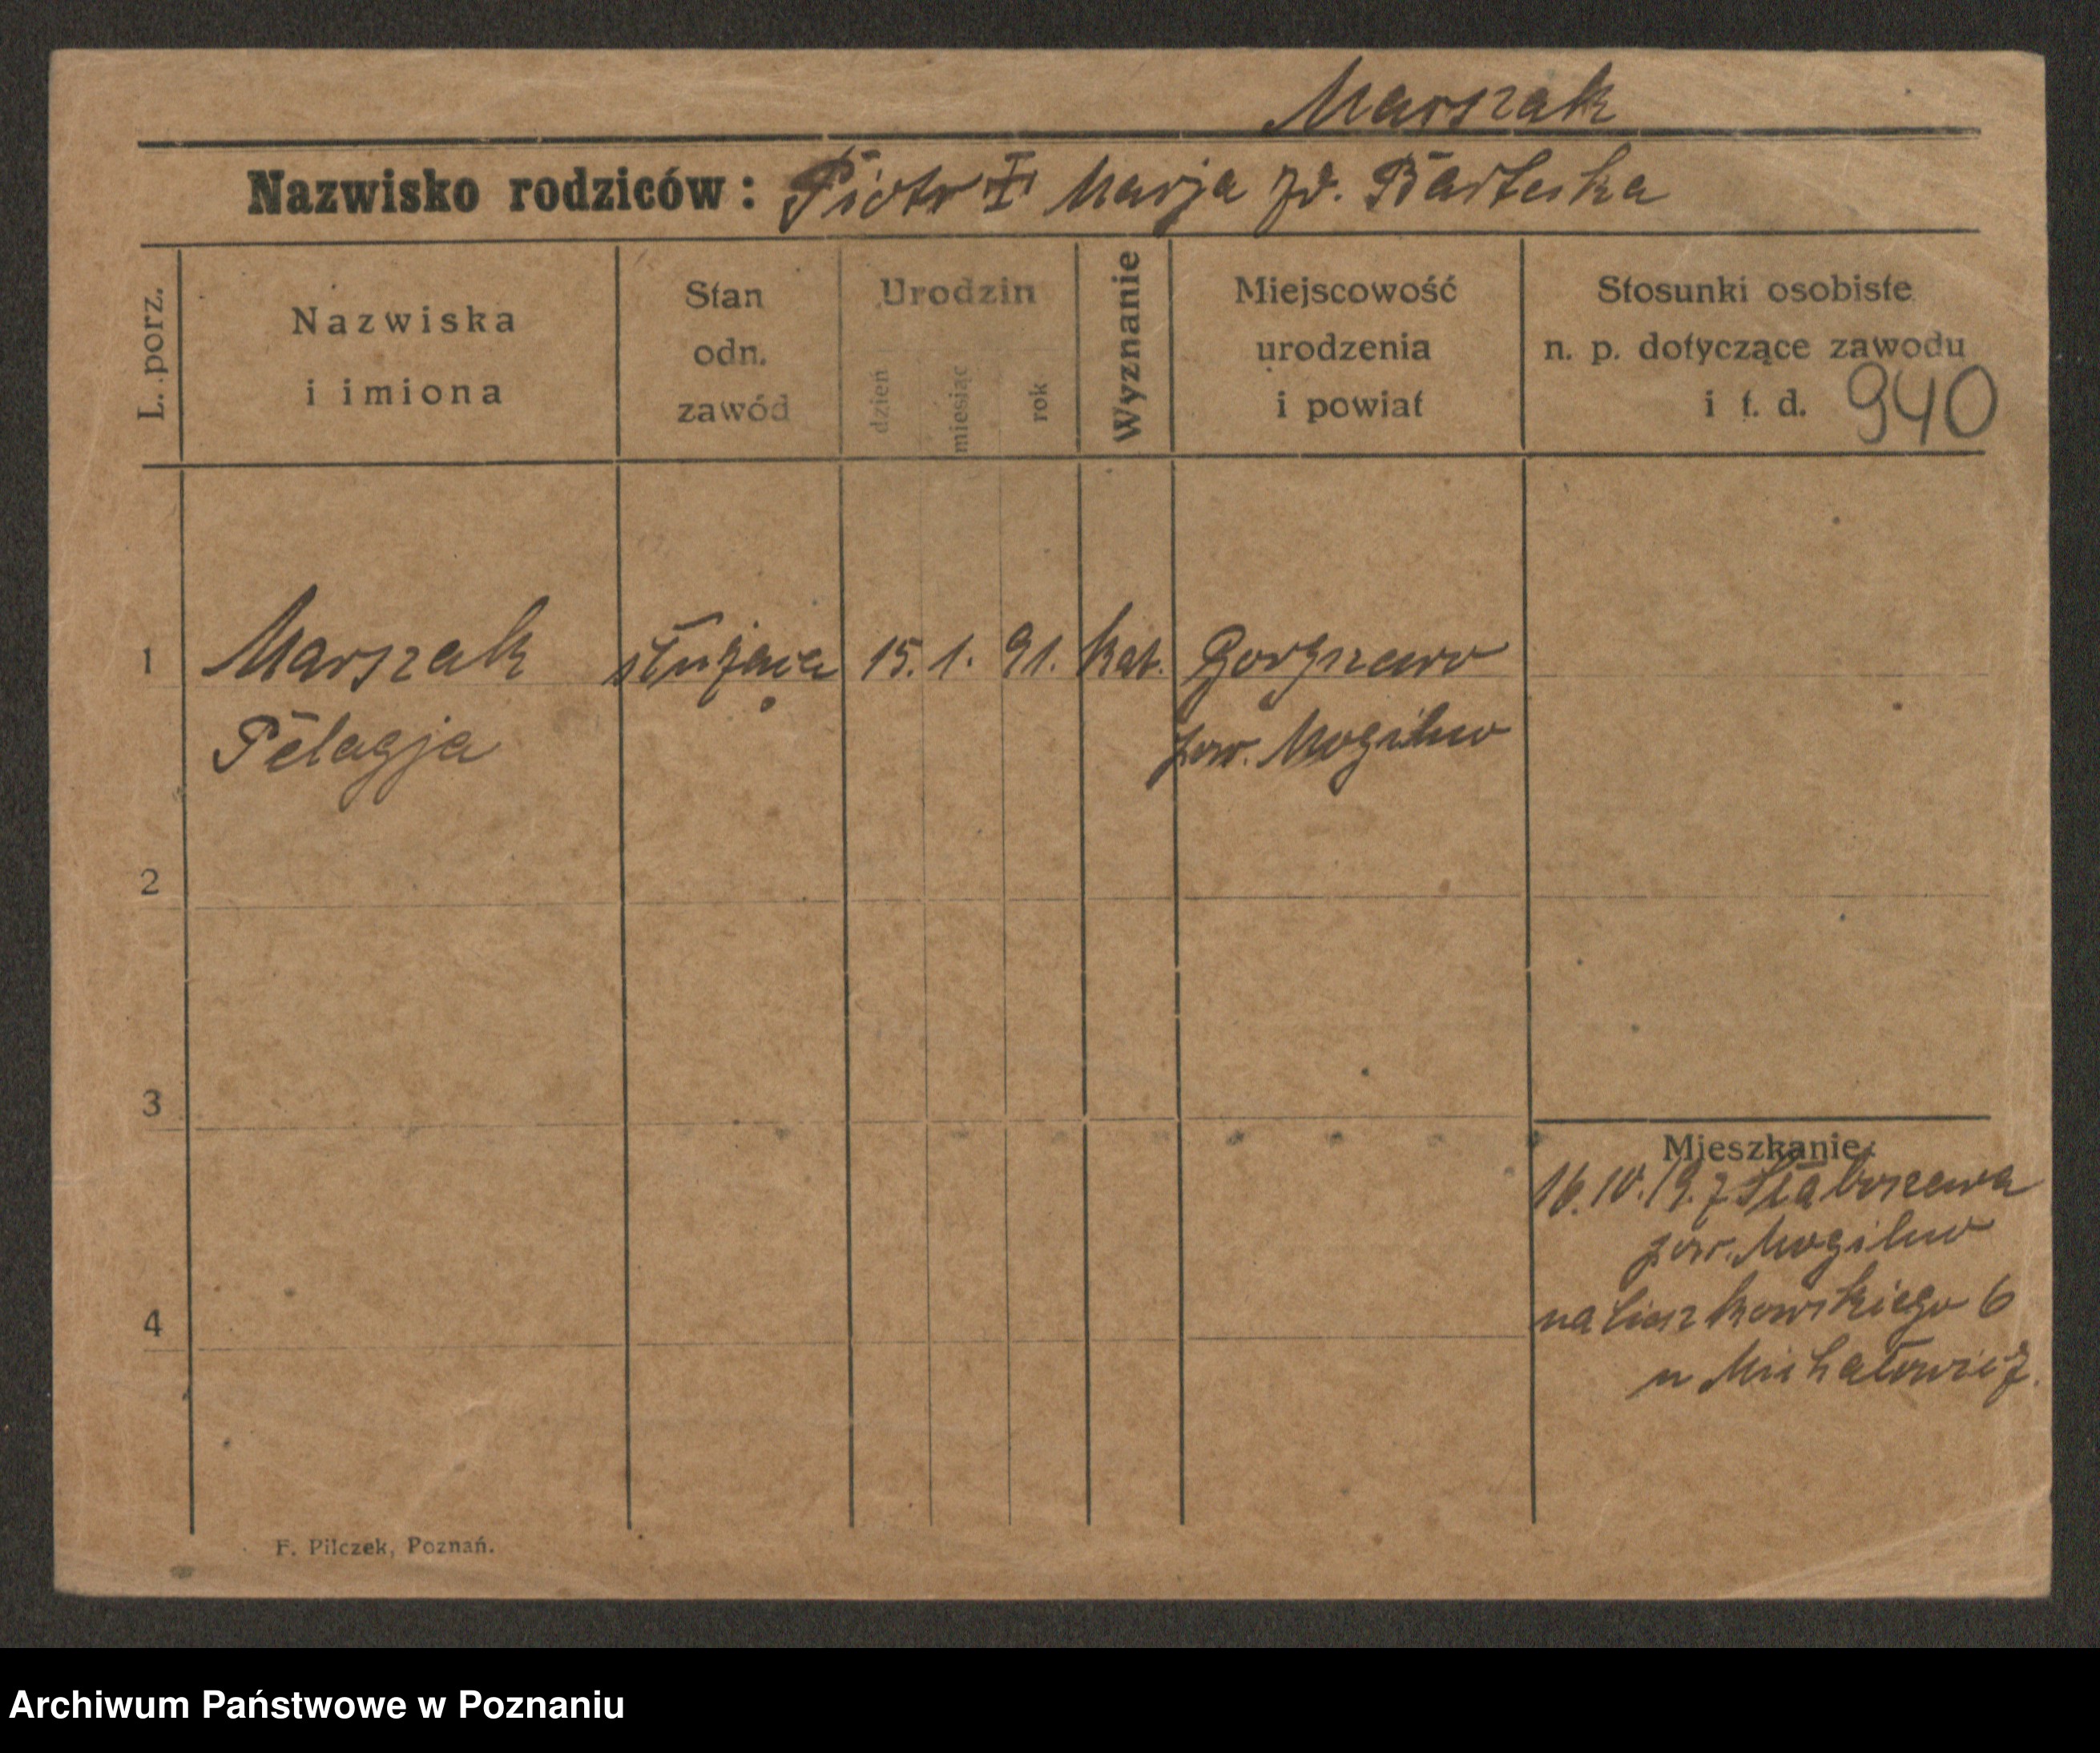 Marszak
Nazwisko rodziców: Piotr I Marja zd. Barteska
L. porz.
Nazwiska i imiona
Stan odn. zawód
Urodzin
dzień miesiąc rok
Wyznanie
Miejscowość urodzenia i powiat
Stosunki osobiste n. p. dotyczące zawodu i t. d.
940
1 Marszak służąca 15. 1. 91. kat.
Pelagja pow. Mogilno
2
3
Mieszkanie:
16.10.19. z
pow. Mogilno
6
4
u Michałowicz.
F. Pilczek, Poznań.
Archiwum Państwowe w Poznaniu